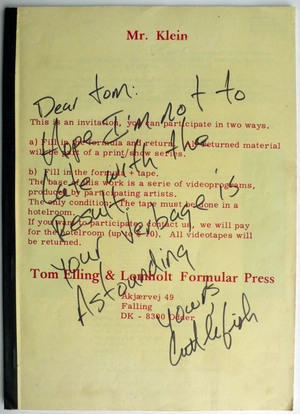 Mr. Klein
Dear tom:
Hope I'm not to
Late with the
Results
your verbage is
Astounding
yours
Cuttlefish
This is an invitation, you can participate in two ways.
a) Fill in the formula and return. All returned material
will be part of a print/show series.
b) Fill in the formula + tape.
The base of this work is a serie of videoprograms,
produced by participating artists.
The only condition: The tape must be done in a
hotelroom.
If you want to participate contact us, we will pay
for the hotelroom (up to $ 10). All videotapes will
be returned.
Tom Elling & Lomholt Formular Press
Akjærvej 49
Falling
DK - 8300 Odder